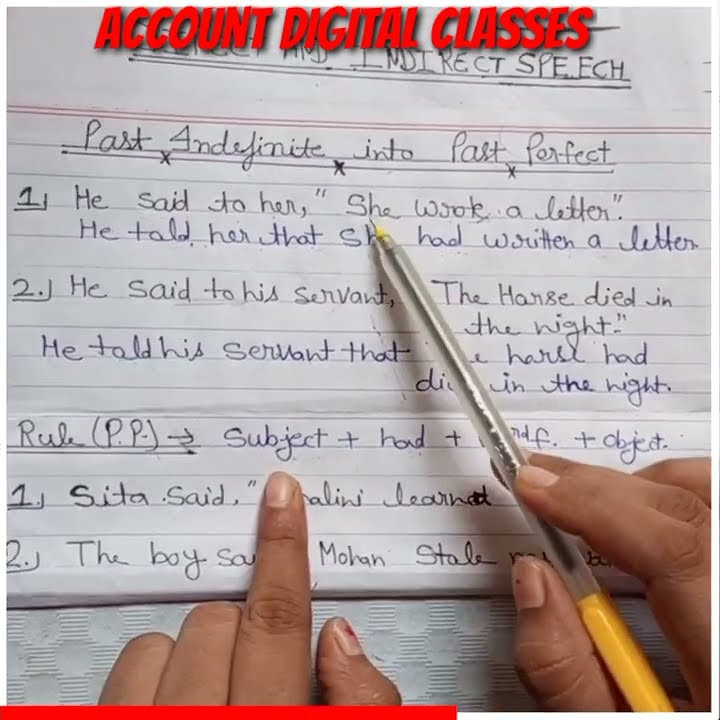 ACCOUNT DIGITAL CLASSES
AND INDIRECT SPEECH
Past Indefinite into Past Perfect
1) He said to her, " She wrok a letter".
He told her that she had written a letter
2.) He said to his servant, The Horse died in
the night."
He told his servant that horse had
in the night.
Rule (P.P.) → Subject + had + + object.
1) Sita said, " learnt
2.) The boy Mohan Stole